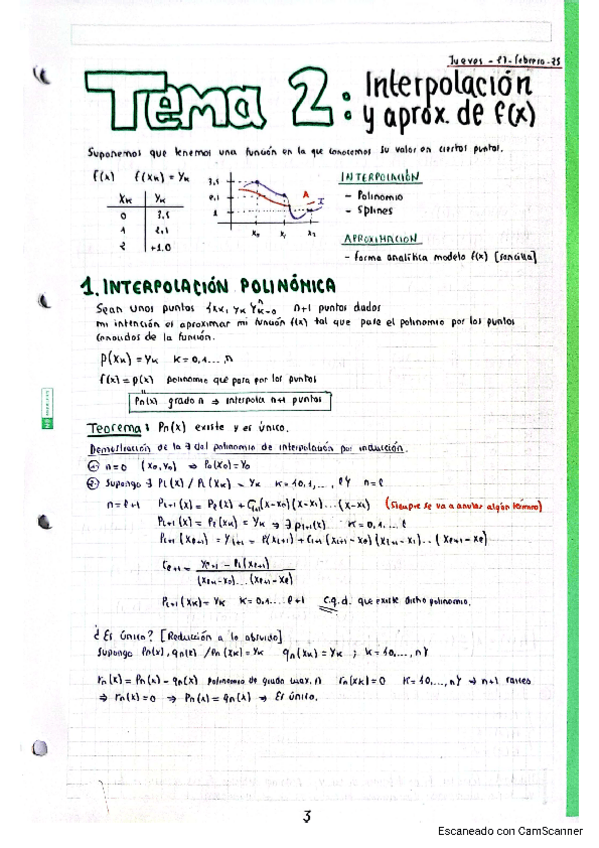 Jueves - 27 - febrero - 25
Tema 2: Interpolación
y aprox. de f(x)
Suponemos que tenemos una función en la que conocemos su valor en ciertos puntos.
f(x) f(xₖ) = yₖ
INTERPOLACIÓN
- Polinomio
- Splines
xₖ yₖ
0 3,5
1 2,1
2 +1.0
A
I
x₀ x₁ x₂
APROXIMACIÓN
- forma analítica modelo f(x) [sencilla]
1. INTERPOLACIÓN POLINÓMICA
Sean unos puntos {xₖ, yₖ}ⁿₖ₌₀ n+1 puntos dados
mi intención es aproximar mi función f(x) tal que pase el polinomio por los puntos
conocidos de la función.
p(xₖ) = yₖ k = 0,1...,n
f(x) = p(x) polinomio que pasa por los puntos
Pn(x) grado n ⇒ interpola n+1 puntos
Teorema: Pn(x) existe y es único.
Demostración de la ∃ del polinomio de interpolación por inducción.
① n=0 (x₀,y₀) ⇒ P₀(x₀)=y₀
② Supongo ∃ Pℓ(x) / Pℓ(xₖ) = yₖ k = {0,1,..., ℓ} n = ℓ
n = ℓ+1 Pℓ₊₁(x) = Pℓ(x) + Cℓ₊₁(x-x₀)(x-x₁)...(x-xℓ) (Siempre se va a anular algún término)
Pℓ₊₁(x) = Pℓ(xₖ) = yₖ ⇒ ∃ pℓ₊₁(x) k = 0,1...ℓ
Pℓ₊₁(xℓ₊₁) = yℓ₊₁ = Pℓ(xℓ₊₁) + Cℓ₊₁(xℓ₊₁-x₀)(xℓ₊₁-x₁)...(xℓ₊₁-xℓ)
Cℓ₊₁ = yℓ₊₁ - Pℓ(xℓ₊₁)
(xℓ₊₁-x₀)...(xℓ₊₁-xℓ)
Pℓ₊₁(xₖ) = yₖ k = 0,1...ℓ+1 c.q.d. que existe dicho polinomio.
¿Es único? [Reducción a lo absurdo]
Supongo Pn(x), qn(x) / Pn(xₖ) = yₖ qn(xₖ) = yₖ ; k = {0,...,n}
rn(x) = Pn(x) - qn(x) polinomio de grado max. n rn(xₖ)=0 k = {0,...,n} ⇒ n+1 raíces
⇒ rn(x) = 0 ⇒ Pn(x) = qn(x) ⇒ Es único.
3
Escaneado con CamScanner